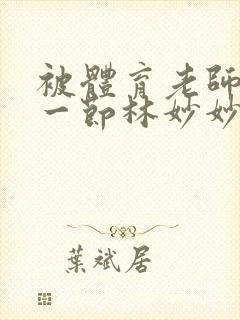 被體育老師
一節林妙妙
葉斌居